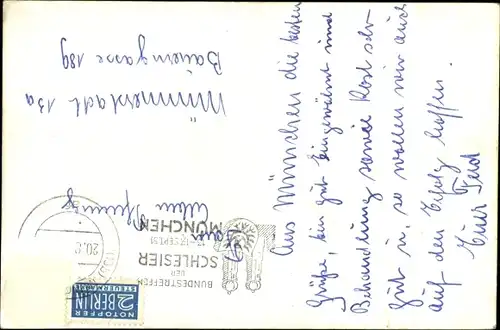 Aus München die besten
Grüße, bin gut eingewöhnt und
Behandlung sowie Kost sehr
gut u. so wollen wir auch
auf den Erfolg hoffen.
Euer Ferd
Münnerstadt 13a
Bauerngasse 189
BUNDESTREFFEN
DER
SCHLESIER
MÜNCHEN
SEPT. 51
20.
NOTOPFER
2 BERLIN
STEUERMARKE